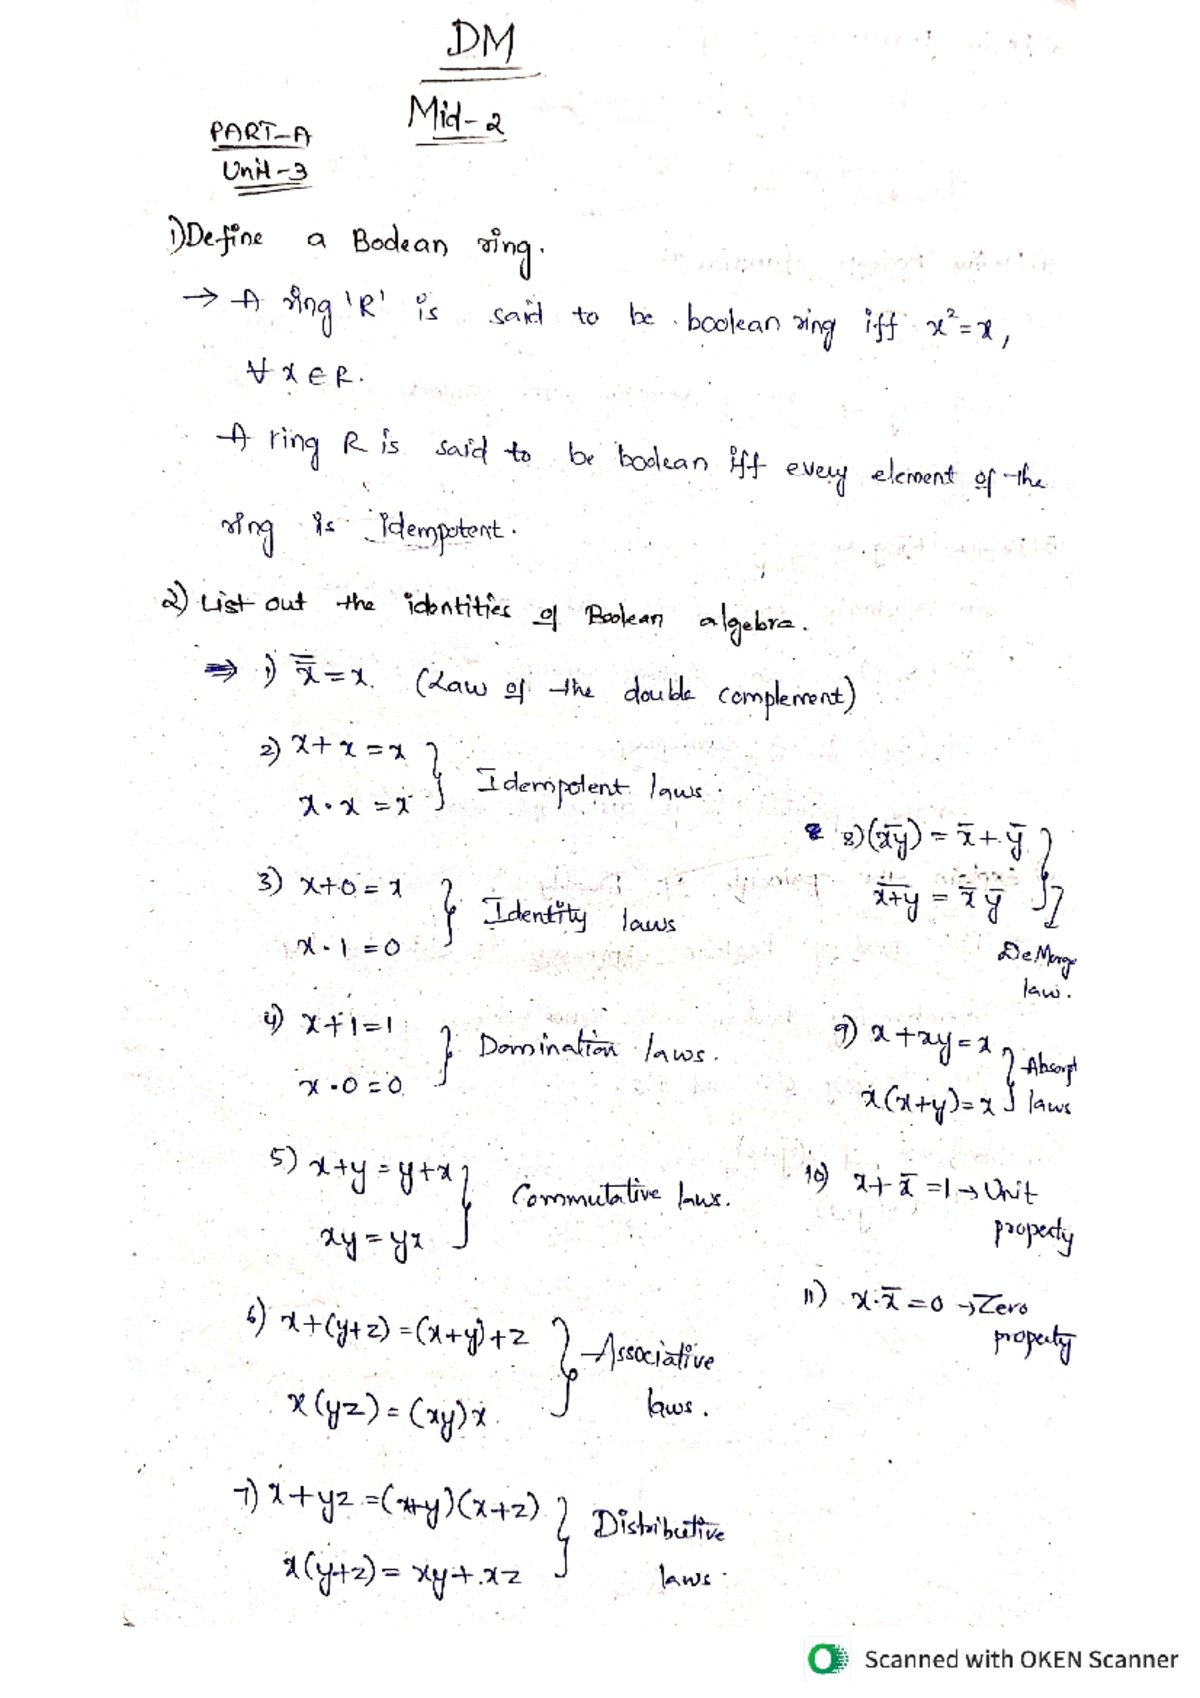 DM
Mid-2
PART-A
Unit-3
1) Define a Boolean ring.
→ A ring 'R' is said to be boolean ring iff x² = x,
∀ x ∈ R.
A ring R is said to be boolean iff every element of the
ring is idempotent.
2) List out the identities of Boolean algebra.
⇒ 1) x̿ = x. (Law of the double complement)
2) x + x = x
x · x = x } Idempotent laws.
3) x + 0 = x
x · 1 = 0 } Identity laws
4) x + 1 = 1
x · 0 = 0 } Domination laws.
5) x + y = y + x
xy = yx } Commutative laws.
6) x + (y + z) = (x + y) + z
x(yz) = (xy)x. } Associative
laws.
7) x + yz = (x+y)(x+z)
x(y+z) = xy + xz } Distributive
laws.
8) (x̅y̅) = x̅ + y̅
x̅+̅y̅ = x̅ y̅ }
De Morge
law.
9) x + xy = x
x(x+y) = x } Absorpt
laws
10) x + x̅ = 1 → Unit
property
11) x·x̅ = 0 → Zero
property
Scanned with OKEN Scanner